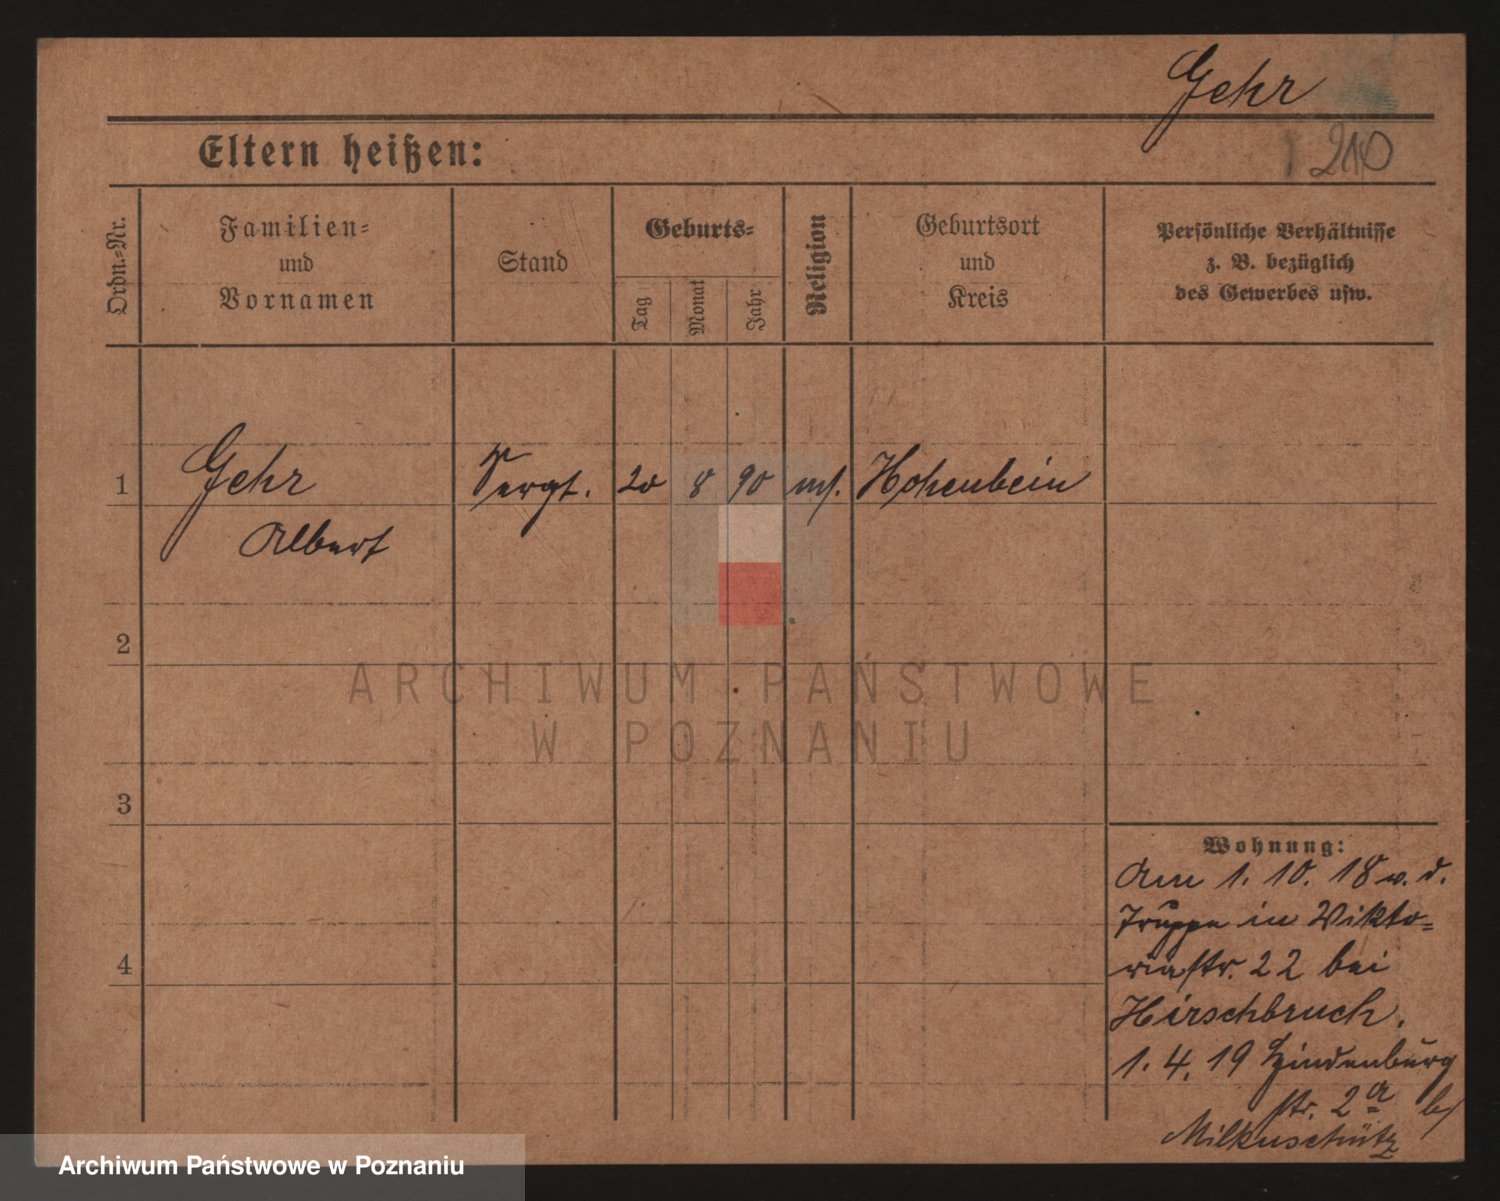 Gehr
210
Eltern heißen:
Ordn.-Nr.
Familien-
und
Vornamen
Stand
Geburts-
Tag
Monat
Jahr
Religion
Geburtsort
und
Kreis
Persönliche Verhältnisse
z. B. bezüglich
des Gewerbes usw.
1
Gehr
Albert
Sergt.
20
8
90
Hohenbein
2
ARCHIWUM PAŃSTWOWE
W POZNANIU
3
4
Wohnung:
Am 1. 10. 18 v. d.
Truppe in Vikto-
riastr. 22 bei
Hirschbruch.
1. 4. 19 Hindenburg
str. 2a b/
Milkuschütz
Archiwum Państwowe w Poznaniu